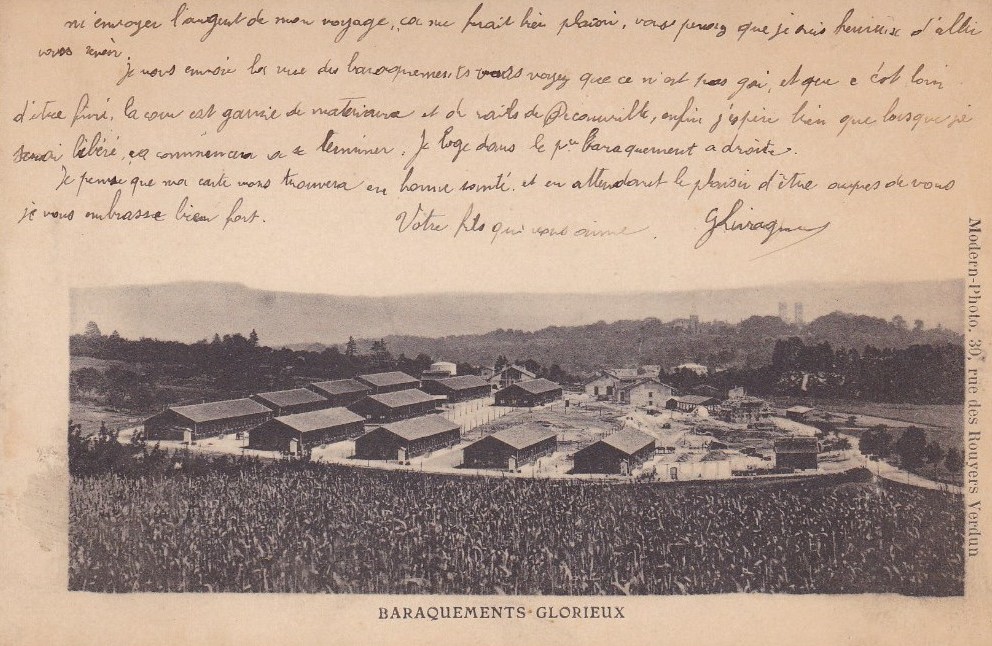 m'envoyer l'argent de mon voyage, ça me ferait bien plaisir, vous pensez que je suis heureux d'aller
vous revoir.
Je vous envoie la vue des baraquements vous voyez que ce n'est pas gai, et que c'est loin
d'être fini, la cour est garnie de matériaux et de rails de Decauville, enfin j'espère bien que lorsque je
serai libéré, ça commencera a se terminer. Je loge dans le pr baraquement a droite.
Je pense que ma carte vous trouvera en bonne santé. et en attendant le plaisir d'être auprès de vous
je vous embrasse bien fort. Votre fils qui vous aime.
Modern-Photo. 30, rue des Rouyers Verdun
BARAQUEMENTS GLORIEUX